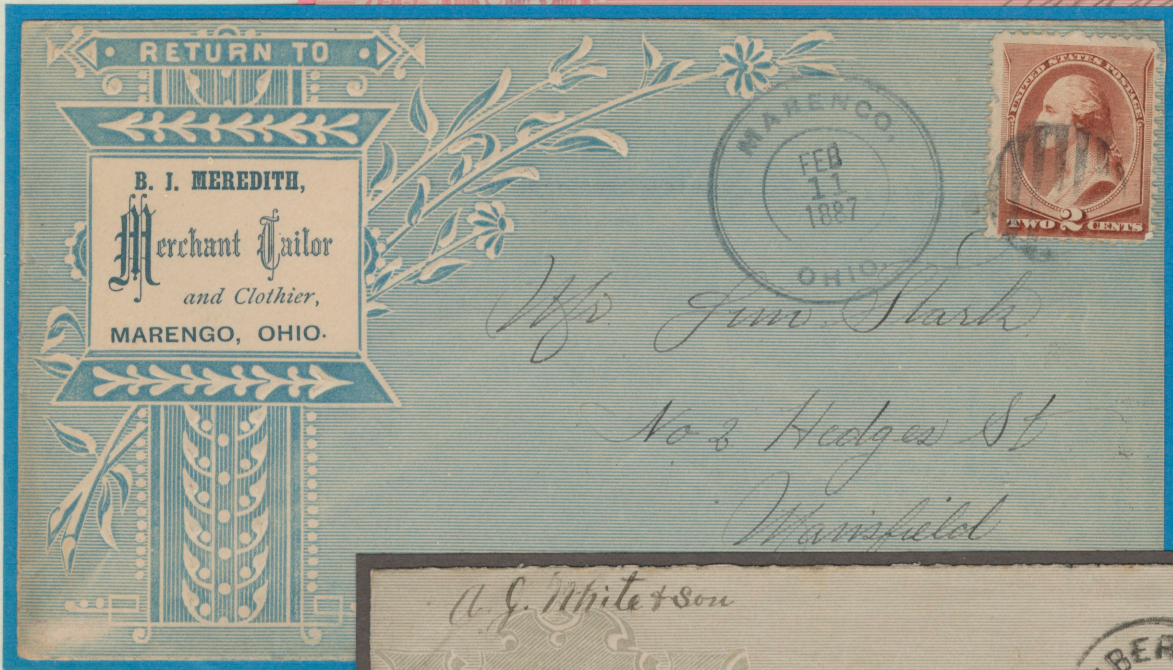 RETURN TO
B. J. MEREDITH,
Merchant Tailor
and Clothier,
MARENGO, OHIO.
MARENCO,
FEB
11
1887
OHIO.
UNITED STATES POSTAGE
TWO 2 CENTS
Mr Jim Stark
No 2 Hedges St
Mansfield
A. G. White & son
BEA